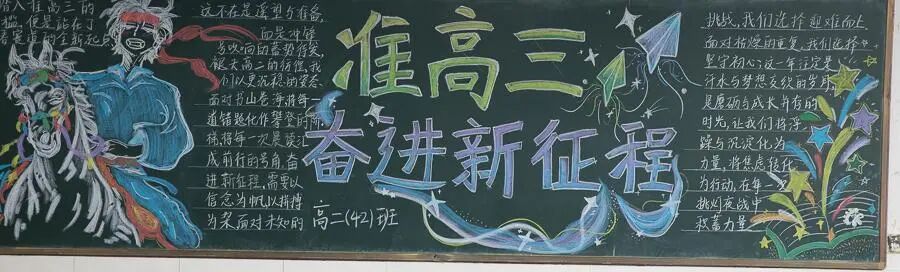 踏入准高三的
门槛,便是站在了
逐梦的全新起点
这不仅是遥望与准备,
而是冲锋
号吹响的蓄势待发,
褪去高二的彷徨,我
们以更沉稳的姿态
面对书山卷海,将每
道错题化作攀登的阶
梯,将每一次晨读汇
成前行的号角,奋
进新征程,需要以
信念为帆以拼搏
为桨面对未知的
准高三
奋进新征程
高二(42)班
挑战,我们选择迎难而上
面对枯燥的重复,我们选择
坚守初心这一年注定是
汗水与梦想交织的岁月
是磨砺与成长并存的
时光,让我们将浮
躁与沉淀化为
力量,将焦虑转化
为行动,在每一
挑灯夜战中
积蓄力量